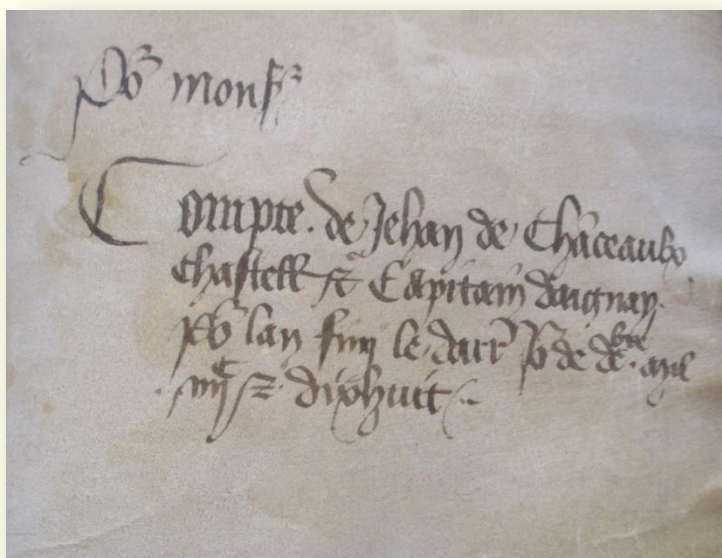 Po' mons'
Compte. de Jehan de Chanceaulx
Chastell' et Capitain daignay.
po' lan finy le darr' Jo' de de'bre. mil
iiijC et dixhuit.